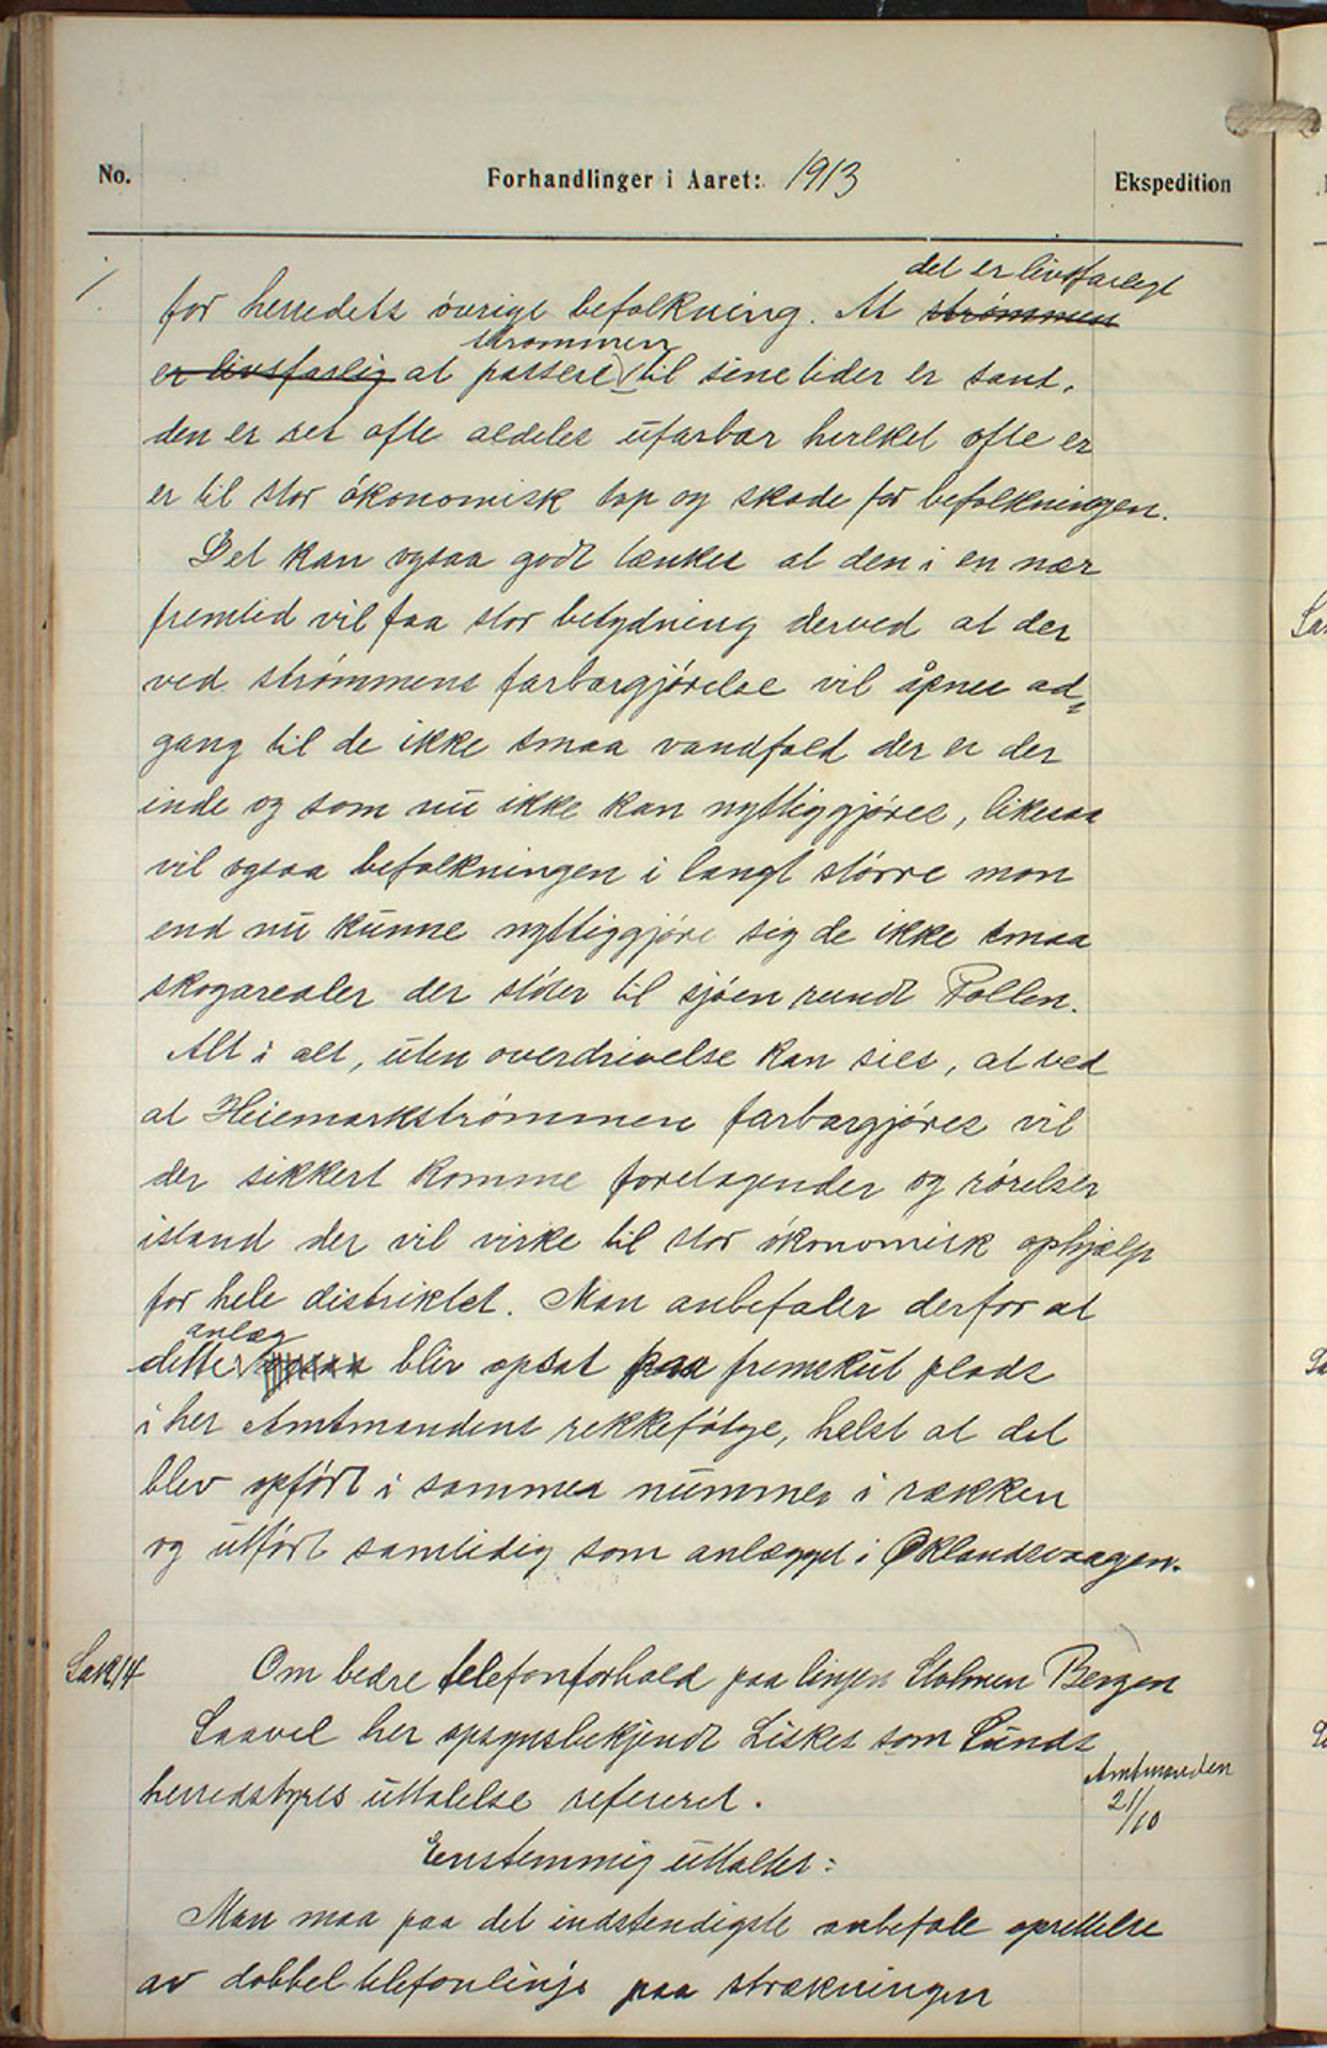 No. Forhandlinger i Aaret: 1913 Ekspedition
det er livsfarligt
1. for herredets øvrige befolkning. At strømmen
strømmen
er livsfarlig at passere til sine tider er sant,
den er set ofte aldeles ufarbar hvilket ofte er
er til stor økonomisk tap og skade for befolkningen.
Det kan ogsaa godt tænkes at den i en nær
fremtid vil faa stor betydning derved at der
ved strømmens farbargjørelse vil åpnes ad-
gang til de ikke smaa vandfald der er der
inde og som nu ikke kan nyttiggjøres, likesaa
vil ogsaa befolkningen i langt større mon
end nu kunne nyttiggjøre sig de ikke smaa
skogarealer der støter til sjøen rundt Pollen.
Alt i alt, uten overdrivelse kan sies, at ved
at Heiemarkstrømmen farbargjøres vil
der sikkert komme foretagender og rørelser
istand der vil virke til stor økonomisk ophjælp
for hele distriktet. Man anbefaler derfor at
anlæg
dette ogsaa blir opsat paa fremskut plads
i her Amtmandens rekkefølge, helst at det
blev opført i samme nummer i rækken
og utført samtidig som anlægget i Øklandsvaagen.
Sak 14 Om bedre telefonforhold paa linjen Stolmen Bergen
Saavel her opsynsbekjendt Liskes som Sunds
Amtmanden
21/10
herredstyres uttalelse referert.
Enstemmig uttaltes:
Man maa paa det indstendigste anbefale oprettelse
av dobbel telefonlinje paa strækningen